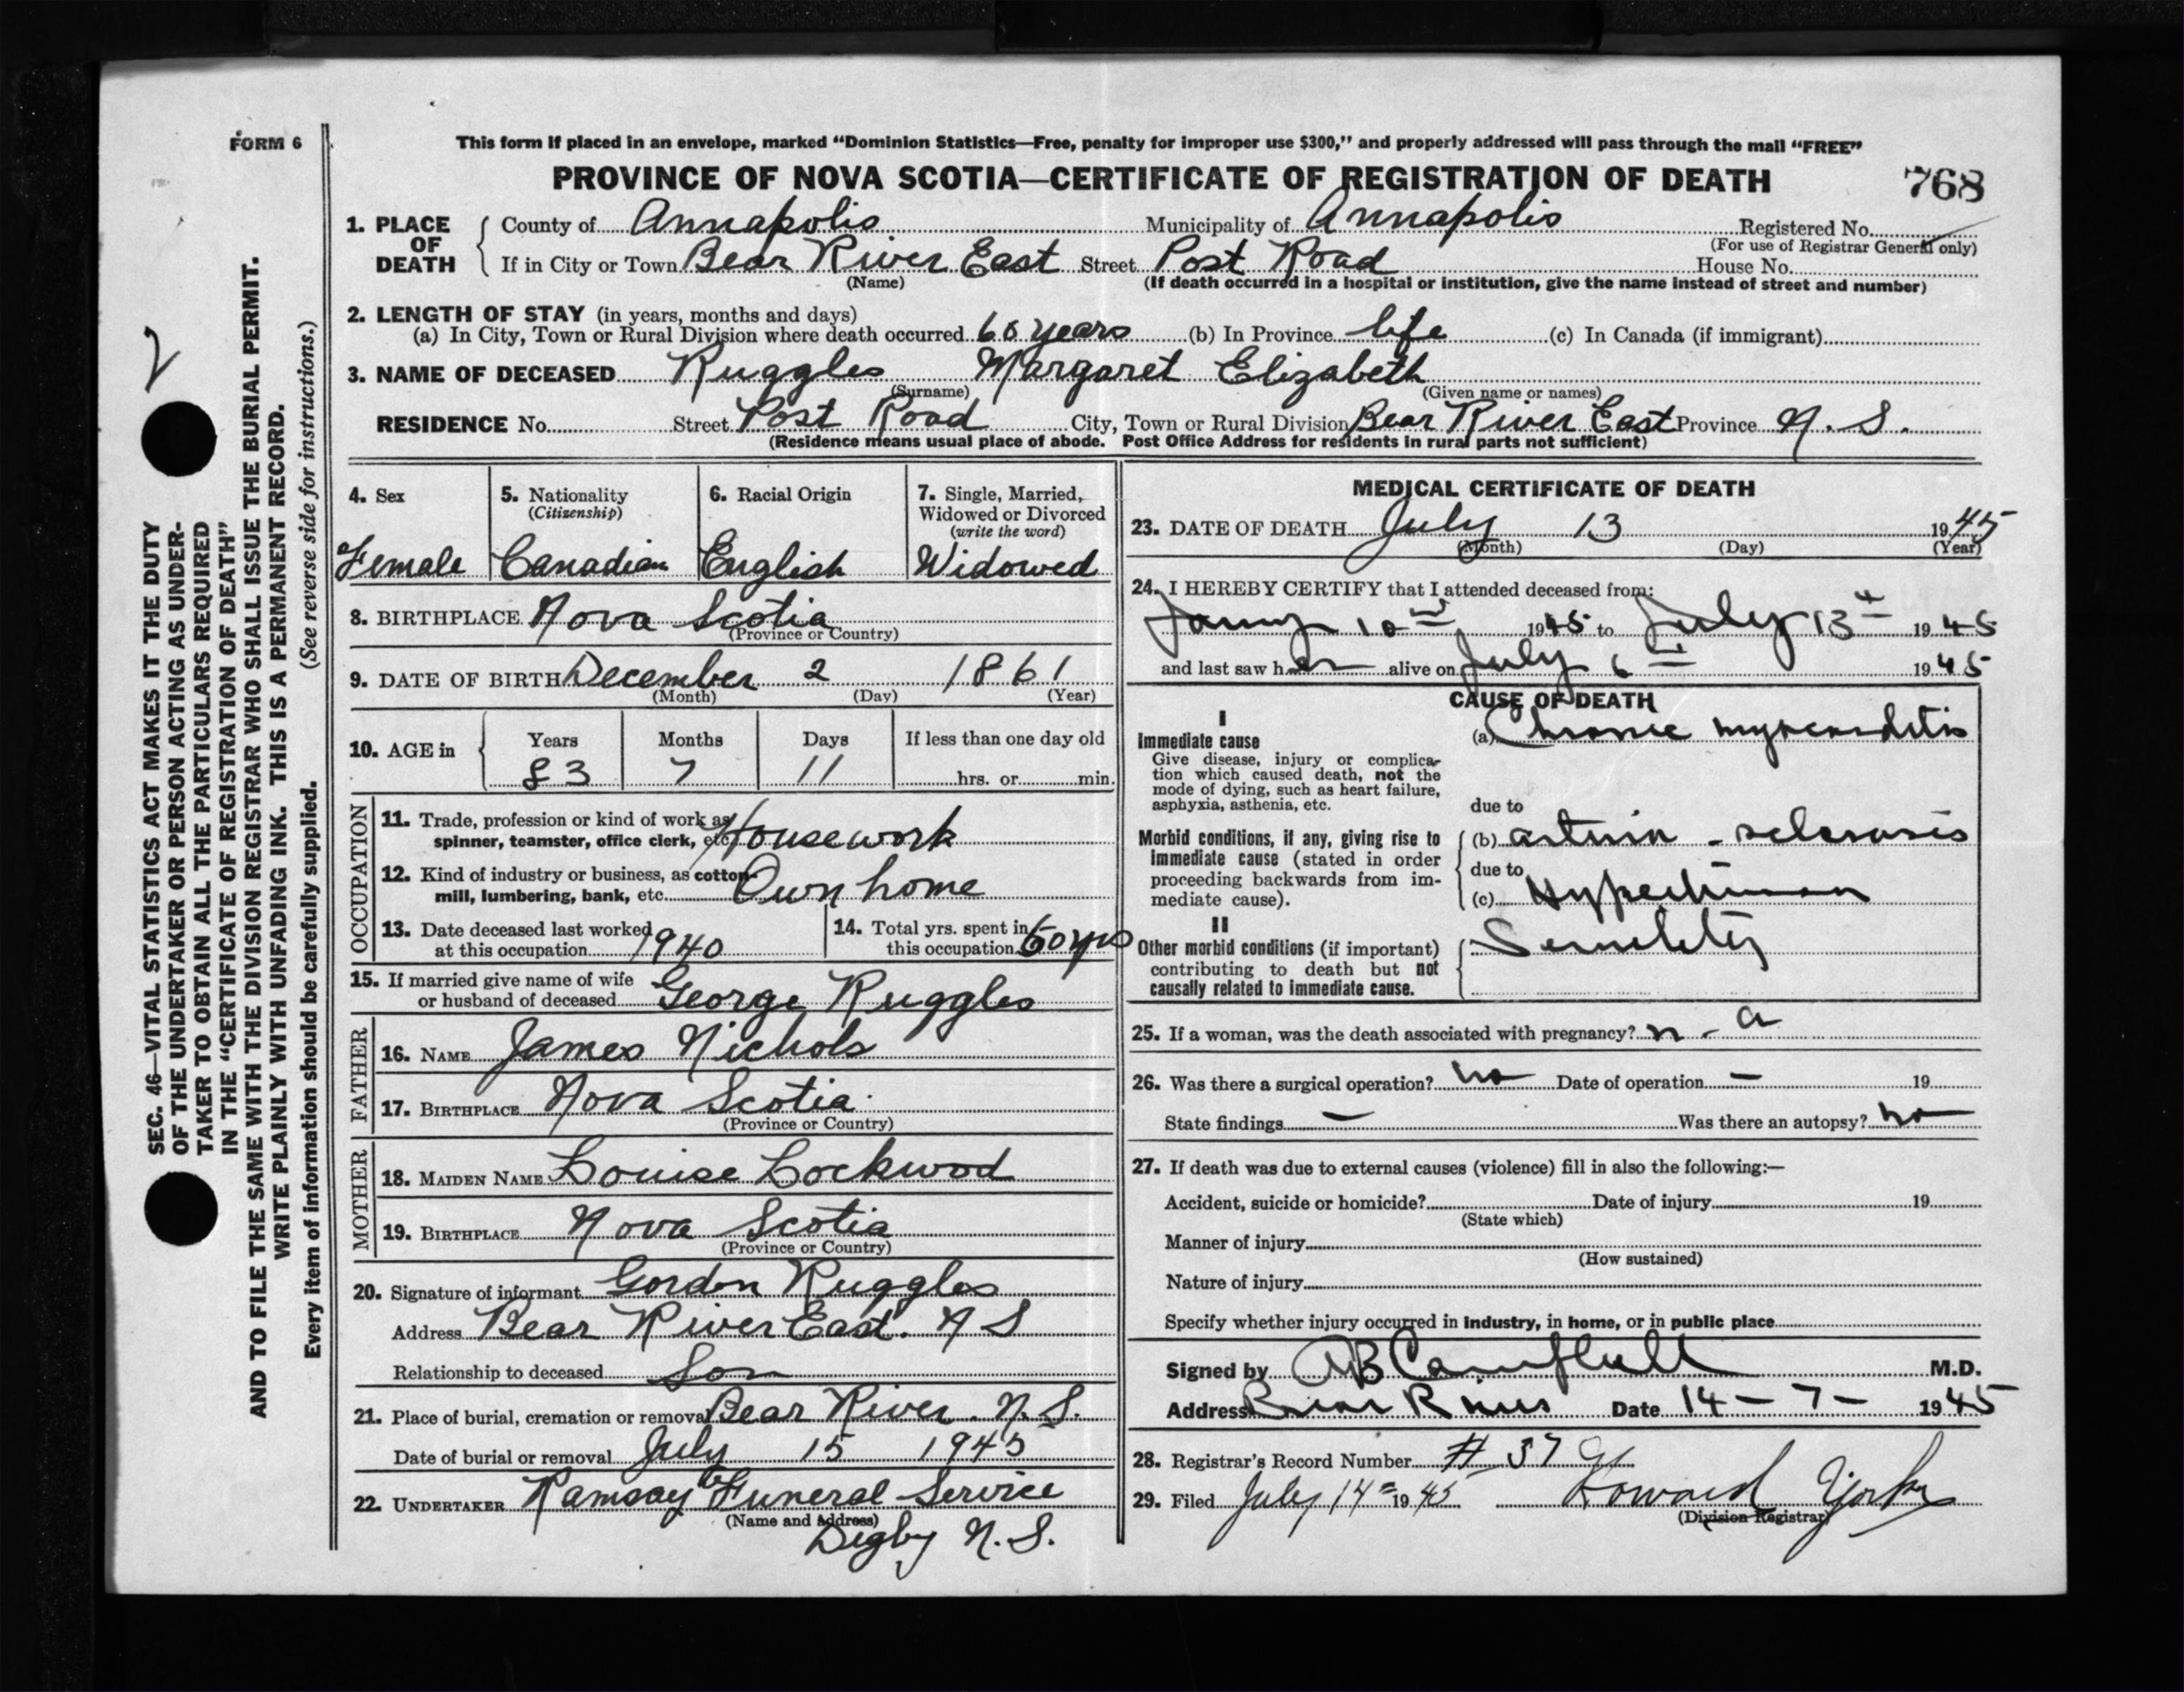 FORM 6
This form if placed in an envelope, marked "Dominion Statistics—Free, penalty for improper use $300," and properly addressed will pass through the mail "FREE"
PROVINCE OF NOVA SCOTIA—CERTIFICATE OF REGISTRATION OF DEATH
768
1. PLACE OF DEATH
County of Annapolis Municipality of Annapolis Registered No.
(For use of Registrar General only)
If in City or Town Bear River East Street Post Road House No.
(Name) (If death occurred in a hospital or institution, give the name instead of street and number)
2. LENGTH OF STAY (in years, months and days)
(a) In City, Town or Rural Division where death occurred 60 years (b) In Province life (c) In Canada (if immigrant)
3. NAME OF DECEASED Ruggles Margaret Elizabeth
(Surname) (Given name or names)
RESIDENCE No. Street Post Road City, Town or Rural Division Bear River East Province N. S.
(Residence means usual place of abode. Post Office Address for residents in rural parts not sufficient)
4. Sex
Female
5. Nationality
(Citizenship)
Canadian
6. Racial Origin
English
7. Single, Married, Widowed or Divorced
(write the word)
Widowed
8. BIRTHPLACE Nova Scotia
(Province or Country)
9. DATE OF BIRTH December 2 1861
(Month) (Day) (Year)
10. AGE in
Years Months Days If less than one day old
83 7 11 hrs. or min.
OCCUPATION
11. Trade, profession or kind of work as
spinner, teamster, office clerk, etc. Housework
12. Kind of industry or business, as cotton-
mill, lumbering, bank, etc. Own home
13. Date deceased last worked
at this occupation 1940
14. Total yrs. spent in
this occupation 60 yrs
15. If married give name of wife
or husband of deceased George Ruggles
FATHER
16. NAME James Nichols
17. BIRTHPLACE Nova Scotia
(Province or Country)
MOTHER
18. MAIDEN NAME Louise Lockwood
19. BIRTHPLACE Nova Scotia
(Province or Country)
20. Signature of informant Gordon Ruggles
Address Bear River East. N S
Relationship to deceased Son
21. Place of burial, cremation or removal Bear River. N. S.
Date of burial or removal July 15 1945
22. UNDERTAKER Ramsay Funeral Service
(Name and address)
Digby N. S.
MEDICAL CERTIFICATE OF DEATH
23. DATE OF DEATH July 13 1945
(Month) (Day) (Year)
24. I HEREBY CERTIFY that I attended deceased from:
10 1945 to July 13th 1945
and last saw her alive on July 6th 1945
CAUSE OF DEATH
I
Immediate cause
Give disease, injury or complica-
tion which caused death, not the
mode of dying, such as heart failure,
asphyxia, asthenia, etc.
(a) Chronic myocarditis
due to
Morbid conditions, if any, giving rise to
immediate cause (stated in order
proceeding backwards from im-
mediate cause).
(b) arterio - sclerosis
due to
(c) Hypertension
II
Other morbid conditions (if important)
contributing to death but not
causally related to immediate cause.
Senility
25. If a woman, was the death associated with pregnancy? n - a
26. Was there a surgical operation? no Date of operation — 19
State findings — Was there an autopsy? no
27. If death was due to external causes (violence) fill in also the following:—
Accident, suicide or homicide? Date of injury 19
(State which)
Manner of injury
(How sustained)
Nature of injury
Specify whether injury occurred in industry, in home, or in public place
Signed by AB Campbell M.D.
Address Bear River Date 14 - 7 - 1945
28. Registrar's Record Number # 37
29. Filed July 14 1945 Howard Yorke
(Division Registrar)
SEC. 46—VITAL STATISTICS ACT MAKES IT THE DUTY
OF THE UNDERTAKER OR PERSON ACTING AS UNDER-
TAKER TO OBTAIN ALL THE PARTICULARS REQUIRED
IN THE "CERTIFICATE OF REGISTRATION OF DEATH"
AND TO FILE THE SAME WITH THE DIVISION REGISTRAR WHO SHALL ISSUE THE BURIAL PERMIT.
WRITE PLAINLY WITH UNFADING INK. THIS IS A PERMANENT RECORD.
Every item of information should be carefully supplied. (See reverse side for instructions.)
2